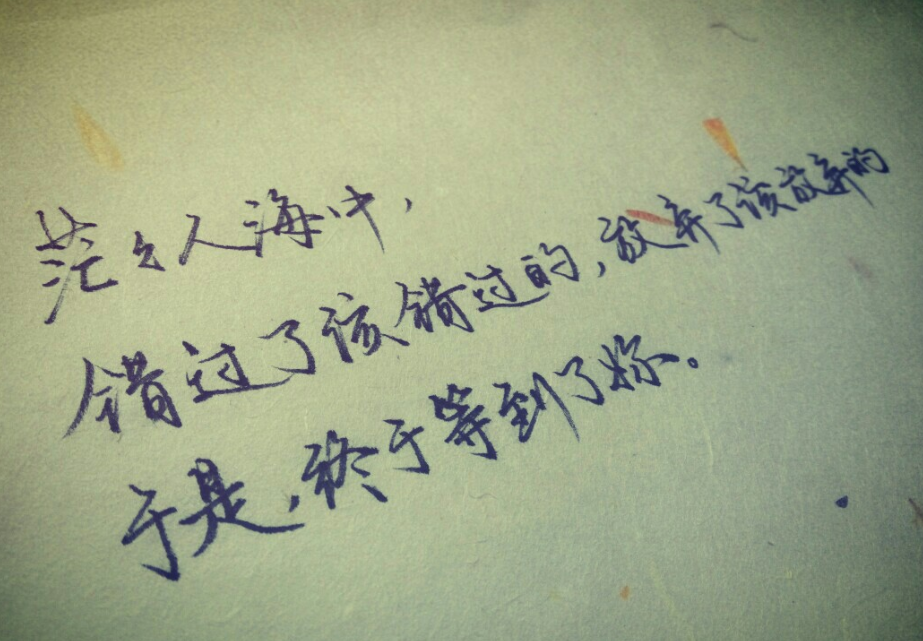 茫々人海中，
错过了该错过的，放弃了该放弃的
于是，终于等到了妳。